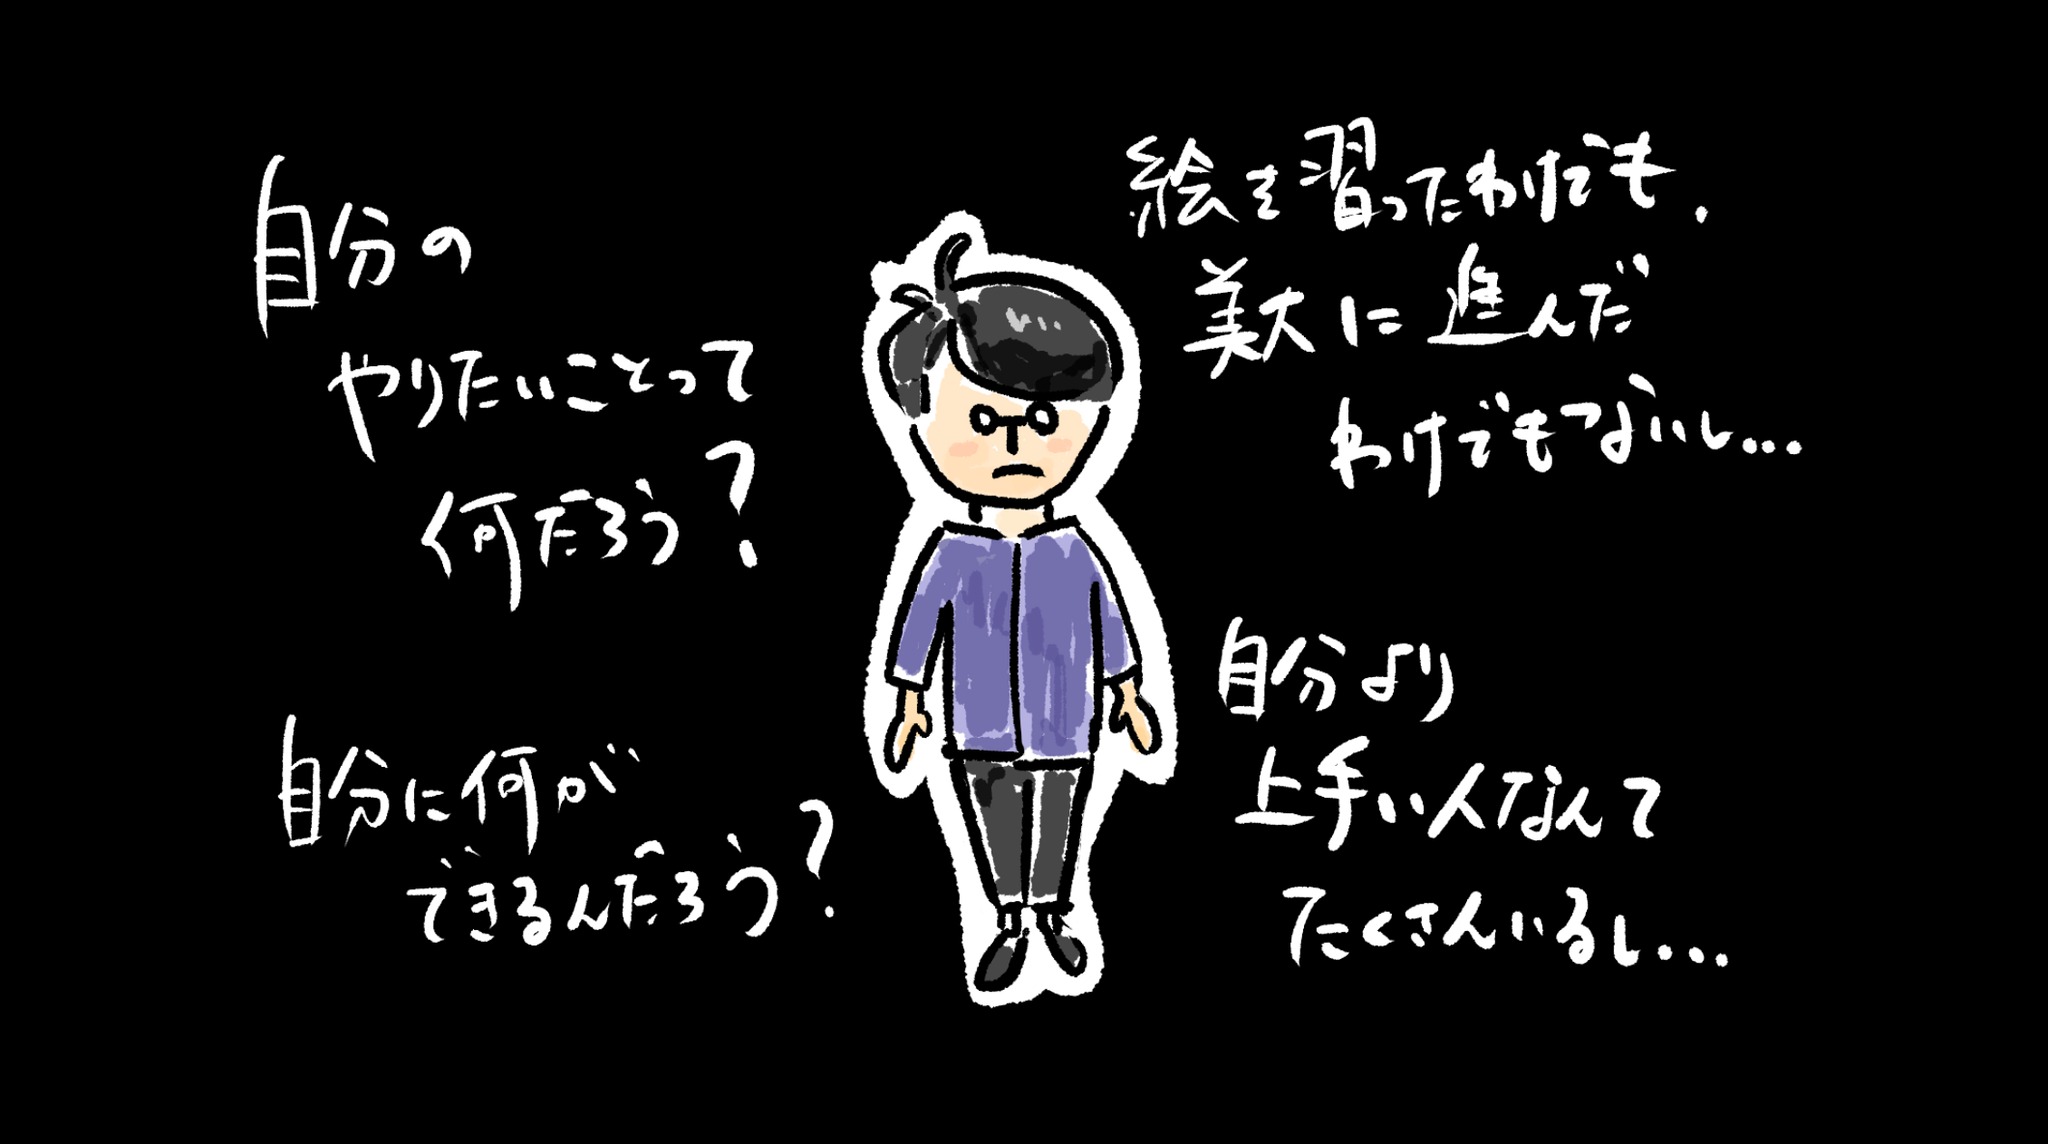 自分の
やりたいことって
何だろう?
自分に何が
できるんだろう?
絵を習ったわけでも、
美大に進んだ
わけでもないし...
自分より
上手い人なんて
たくさんいるし...